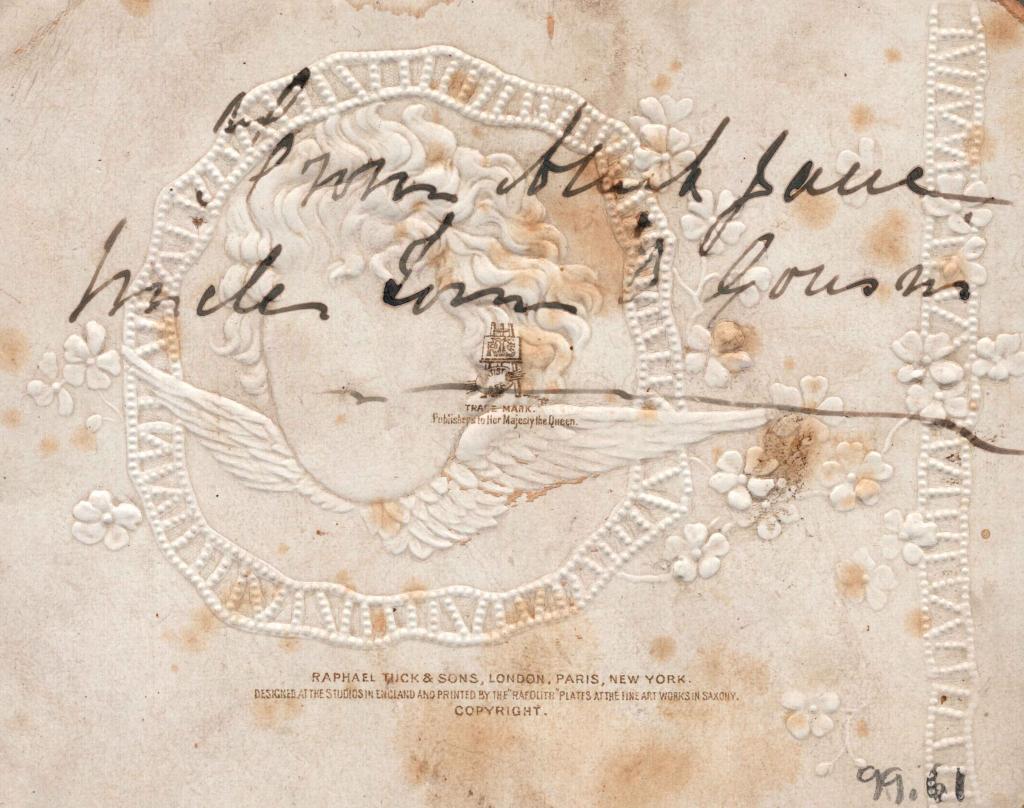 and
From black Jane
Uncle Tom's Cousin
TRADE MARK.
Publishers to Her Majesty the Queen.
RAPHAEL TUCK & SONS, LONDON, PARIS, NEW YORK.
DESIGNED AT THE STUDIOS IN ENGLAND AND PRINTED BY THE "RAFOLITH" PLATES AT THE FINE ART WORKS IN SAXONY.
COPYRIGHT.
99.61